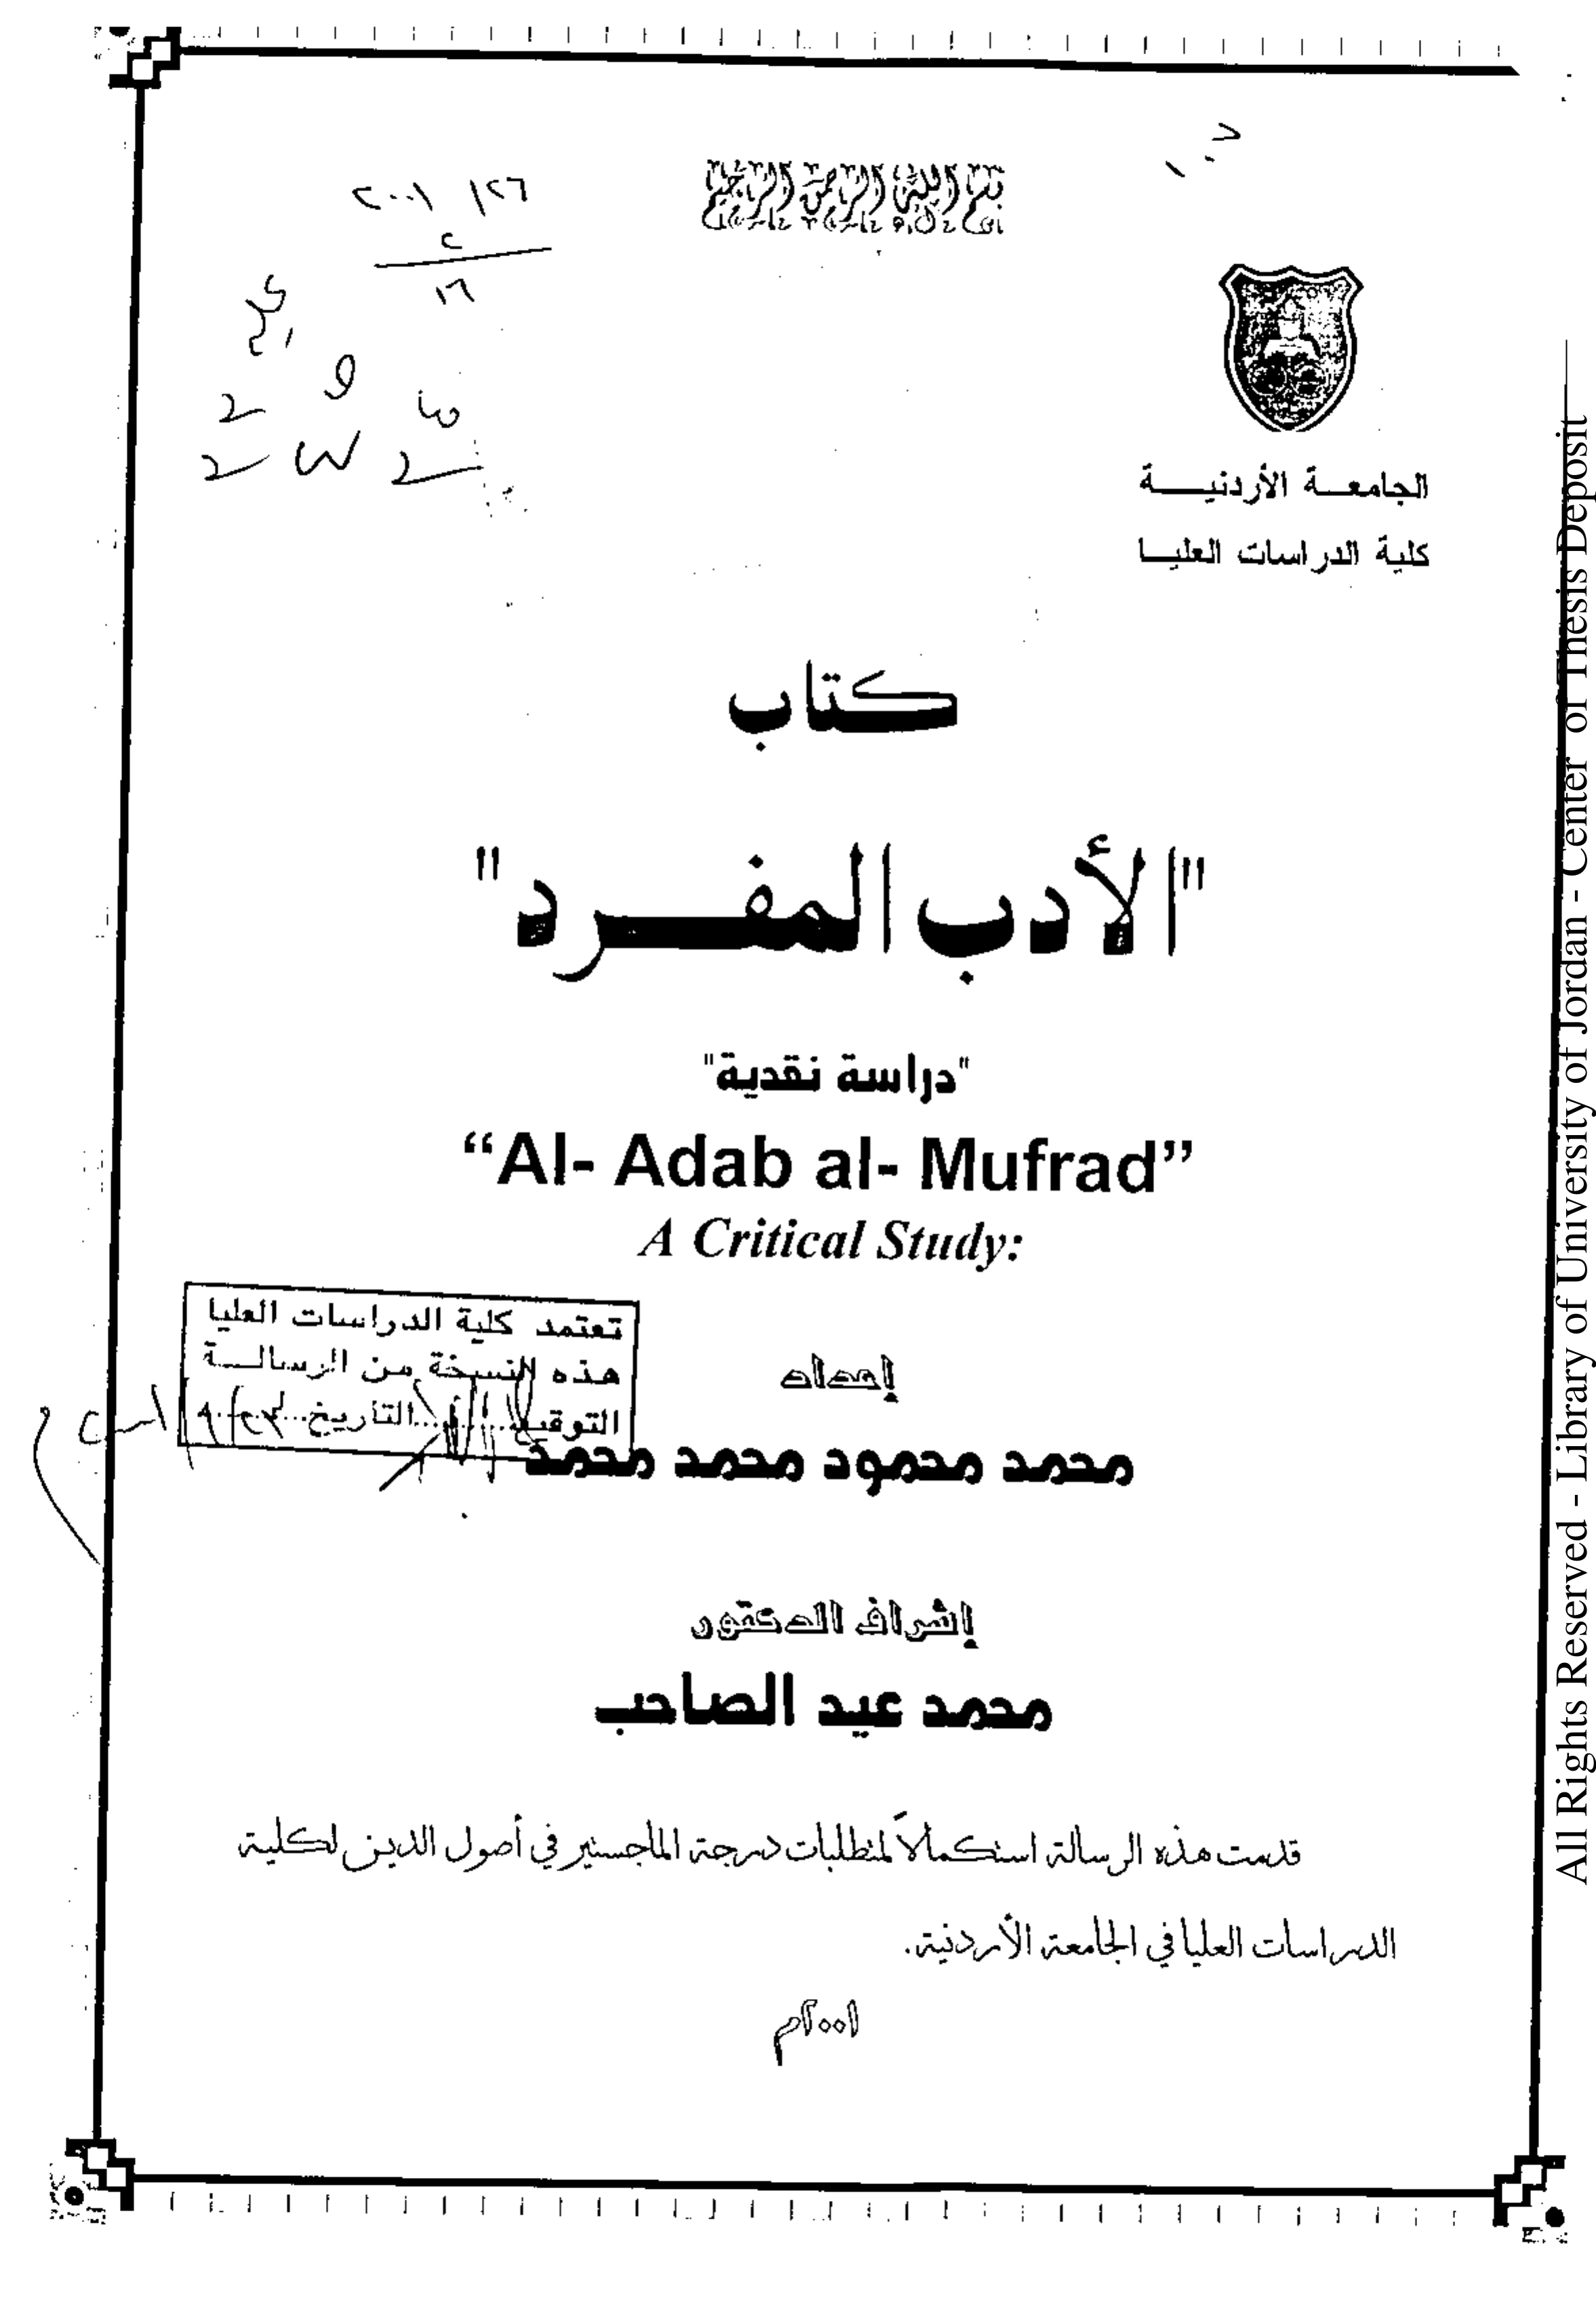 بسم الله الرحمن الرحيم
١٢٦ ٢٠٠١
٢
١٦
الجامعــة الأردنيــــة
كلية الدراسات العليــا
كتاب
"الأدب المفـــرد"
"دراسة نقدية"
“Al- Adab al- Mufrad”
A Critical Study:
تعتمد كلية الدراسات العليا
هذه النسخة من الرسالــة
التوقيع............التاريخ.........
إعداد
محمد محمود محمد محمد
إشراف الدكتور
محمد عيد الصاحب
قدمت هذه الرسالة استكمالاً لمتطلبات درجة الماجستير في أصول الدين لكلية
الدراسات العليا في الجامعة الأردنية.
٢٠٠١م
All Rights Reserved - Library of University of Jordan - Center of Thesis Deposit